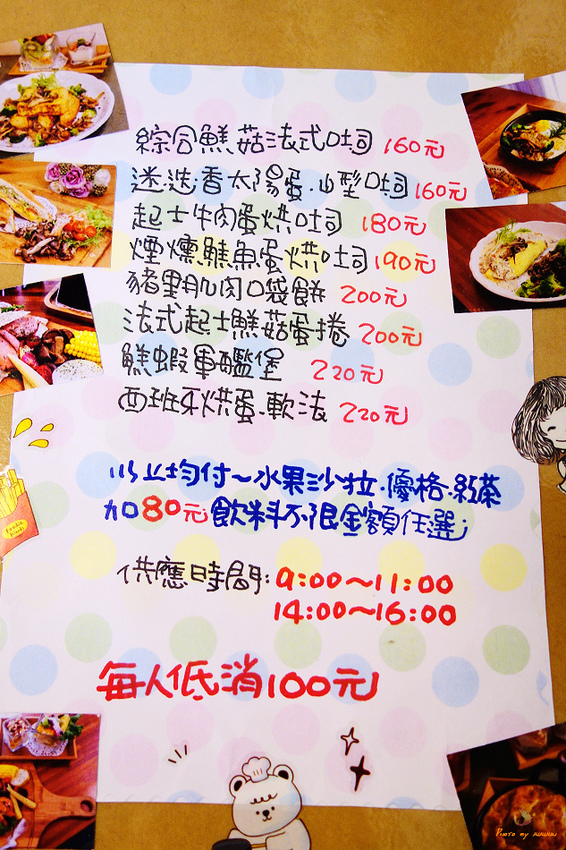 綜合鮮菇法式吐司 160元
迷迭香太陽蛋.山型吐司 160元
起士牛肉蛋烘吐司 180元
煙燻鮭魚蛋烘吐司 190元
豬里肌肉口袋餅 200元
法式起士鮮菇蛋捲 200元
鮮蝦軍艦堡 220元
西班牙烘蛋.軟法 220元
以上均付～水果沙拉.優格.紅茶
加80元飲料不限金額任選;
供應時間: 9:00～11:00
14:00～16:00
每人低消100元